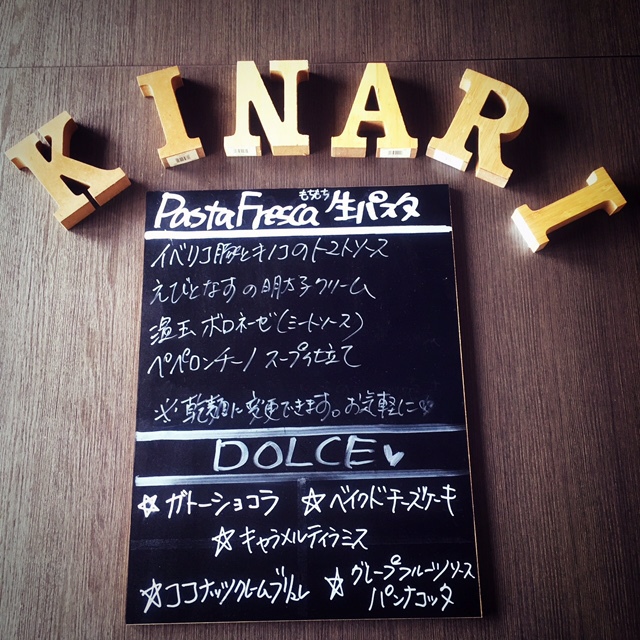 KINARI
Pasta Fresca もちもち 生パスタ
イベリコ豚とキノコのトマトソース
えびとなすの明太子クリーム
温玉 ボロネーゼ(ミートソース)
ペペロンチーノ スープ仕立て
※ 乾麺に変更できます。お気軽に♡
DOLCE♥
☆ ガトーショコラ ☆ ベイクドチーズケーキ
☆ キャラメルティラミス
☆ ココナッツクレームブリュレ ☆ グレープフルーツソース
パンナコッタ